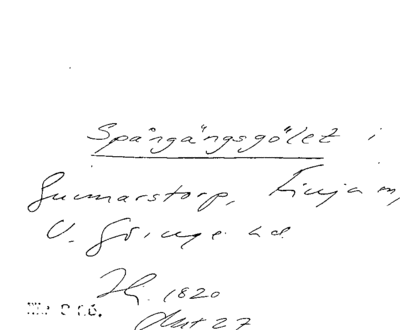 Spångångsgölet i
Gunnarstorp, Finja sn,
V. Göinge hd
1820
27